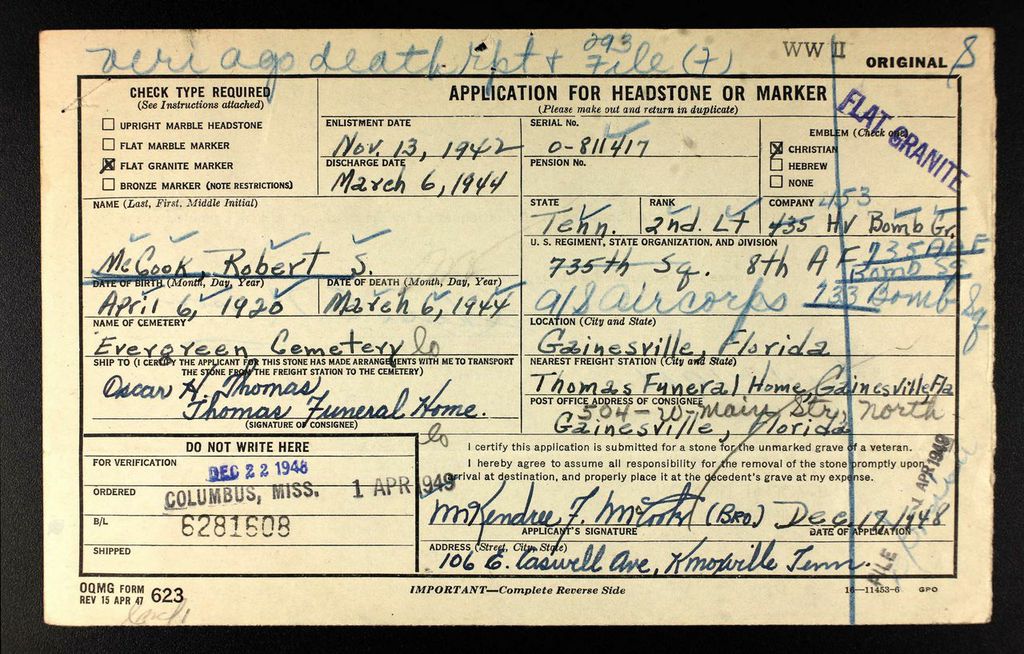 veri ago death rpt + 293 File (7)
WW II
ORIGINAL
CHECK TYPE REQUIRED
(See Instructions attached)
UPRIGHT MARBLE HEADSTONE
FLAT MARBLE MARKER
FLAT GRANITE MARKER
BRONZE MARKER (NOTE RESTRICTIONS)
APPLICATION FOR HEADSTONE OR MARKER
(Please make out and return in duplicate)
ENLISTMENT DATE
Nov. 13, 1942
DISCHARGE DATE
March 6, 1944
SERIAL No.
O-811417
PENSION No.
EMBLEM (Check one)
CHRISTIAN
HEBREW
NONE
FLAT GRANITE
NAME (Last, First, Middle Initial)
McCook, Robert S.
STATE
Tenn.
RANK
2nd. Lt
COMPANY
453
435 Hv Bomb Gr.
U. S. REGIMENT, STATE ORGANIZATION, AND DIVISION
735th Sq. 8th A F
Bomb Sq
A/S aircorps 733 Bomb Sq
DATE OF BIRTH (Month, Day, Year)
April 6, 1920
DATE OF DEATH (Month, Day, Year)
March 6, 1944
NAME OF CEMETERY
Evergreen Cemetery
LOCATION (City and State)
Gainesville, Florida
SHIP TO (I CERTIFY THE APPLICANT FOR THIS STONE HAS MADE ARRANGEMENTS WITH ME TO TRANSPORT
THE STONE FROM THE FREIGHT STATION TO THE CEMETERY)
Oscar H. Thomas
Thomas Funeral Home.
(SIGNATURE OF CONSIGNEE)
NEAREST FREIGHT STATION (City and State)
Thomas Funeral Home, Gainesville Fla
POST OFFICE ADDRESS OF CONSIGNEE
504-W-Main Str, North
Gainesville, Florida
DO NOT WRITE HERE
FOR VERIFICATION
DEC 22 1948
ORDERED
COLUMBUS, MISS. 1 APR 1949
B/L
6281608
SHIPPED
I certify this application is submitted for a stone for the unmarked grave of a veteran.
I hereby agree to assume all responsibility for the removal of the stone promptly upon
arrival at destination, and properly place it at the decedent's grave at my expense.
McKendree F. McCook (Bro.) Dec. 17, 1948
APPLICANT'S SIGNATURE
DATE OF APPLICATION
ADDRESS (Street, City, State)
106 E. Caswell Ave, Knoxville Tenn.
FILE 1 APR 1949
OQMG FORM
REV 15 APR 47 623
IMPORTANT—Complete Reverse Side
16—11453-6 GPO